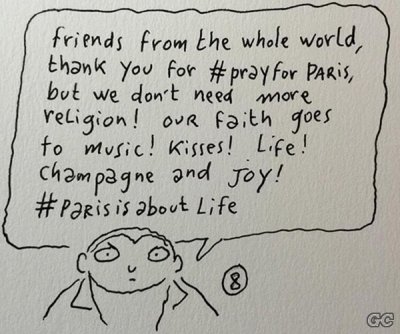 friends from the whole world,
thank you for #prayfor PARIS,
but we don't need more
religion! our faith goes
to music! kisses! Life!
champagne and JOY!
#PARisis about Life
8
GC